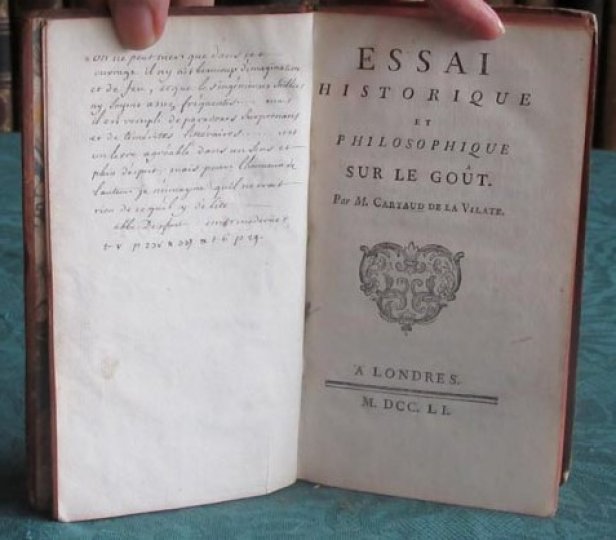 on ne peut nier que dans cet
ouvrage il n'y ait beaucoup d'imagination
et de feu, et que les ingénieuses
n'y soyent assez fréquentes mais
il est rempli de paradoxes
et de témérités littéraires
un livre agréable dans un sens et
plein d'esprit; mais pour l'honneur de
l'auteur je m'imagine qu'il ne croit
rien de ce qu'il y debite
abbé Desfont. 
t. v p. & t. 6 p. 29.
ESSAI
HISTORIQUE
ET
PHILOSOPHIQUE
SUR LE GOÛT.
Par M. CARTAUD DE LA VILATE.
A LONDRES.
M. DCC. LI.